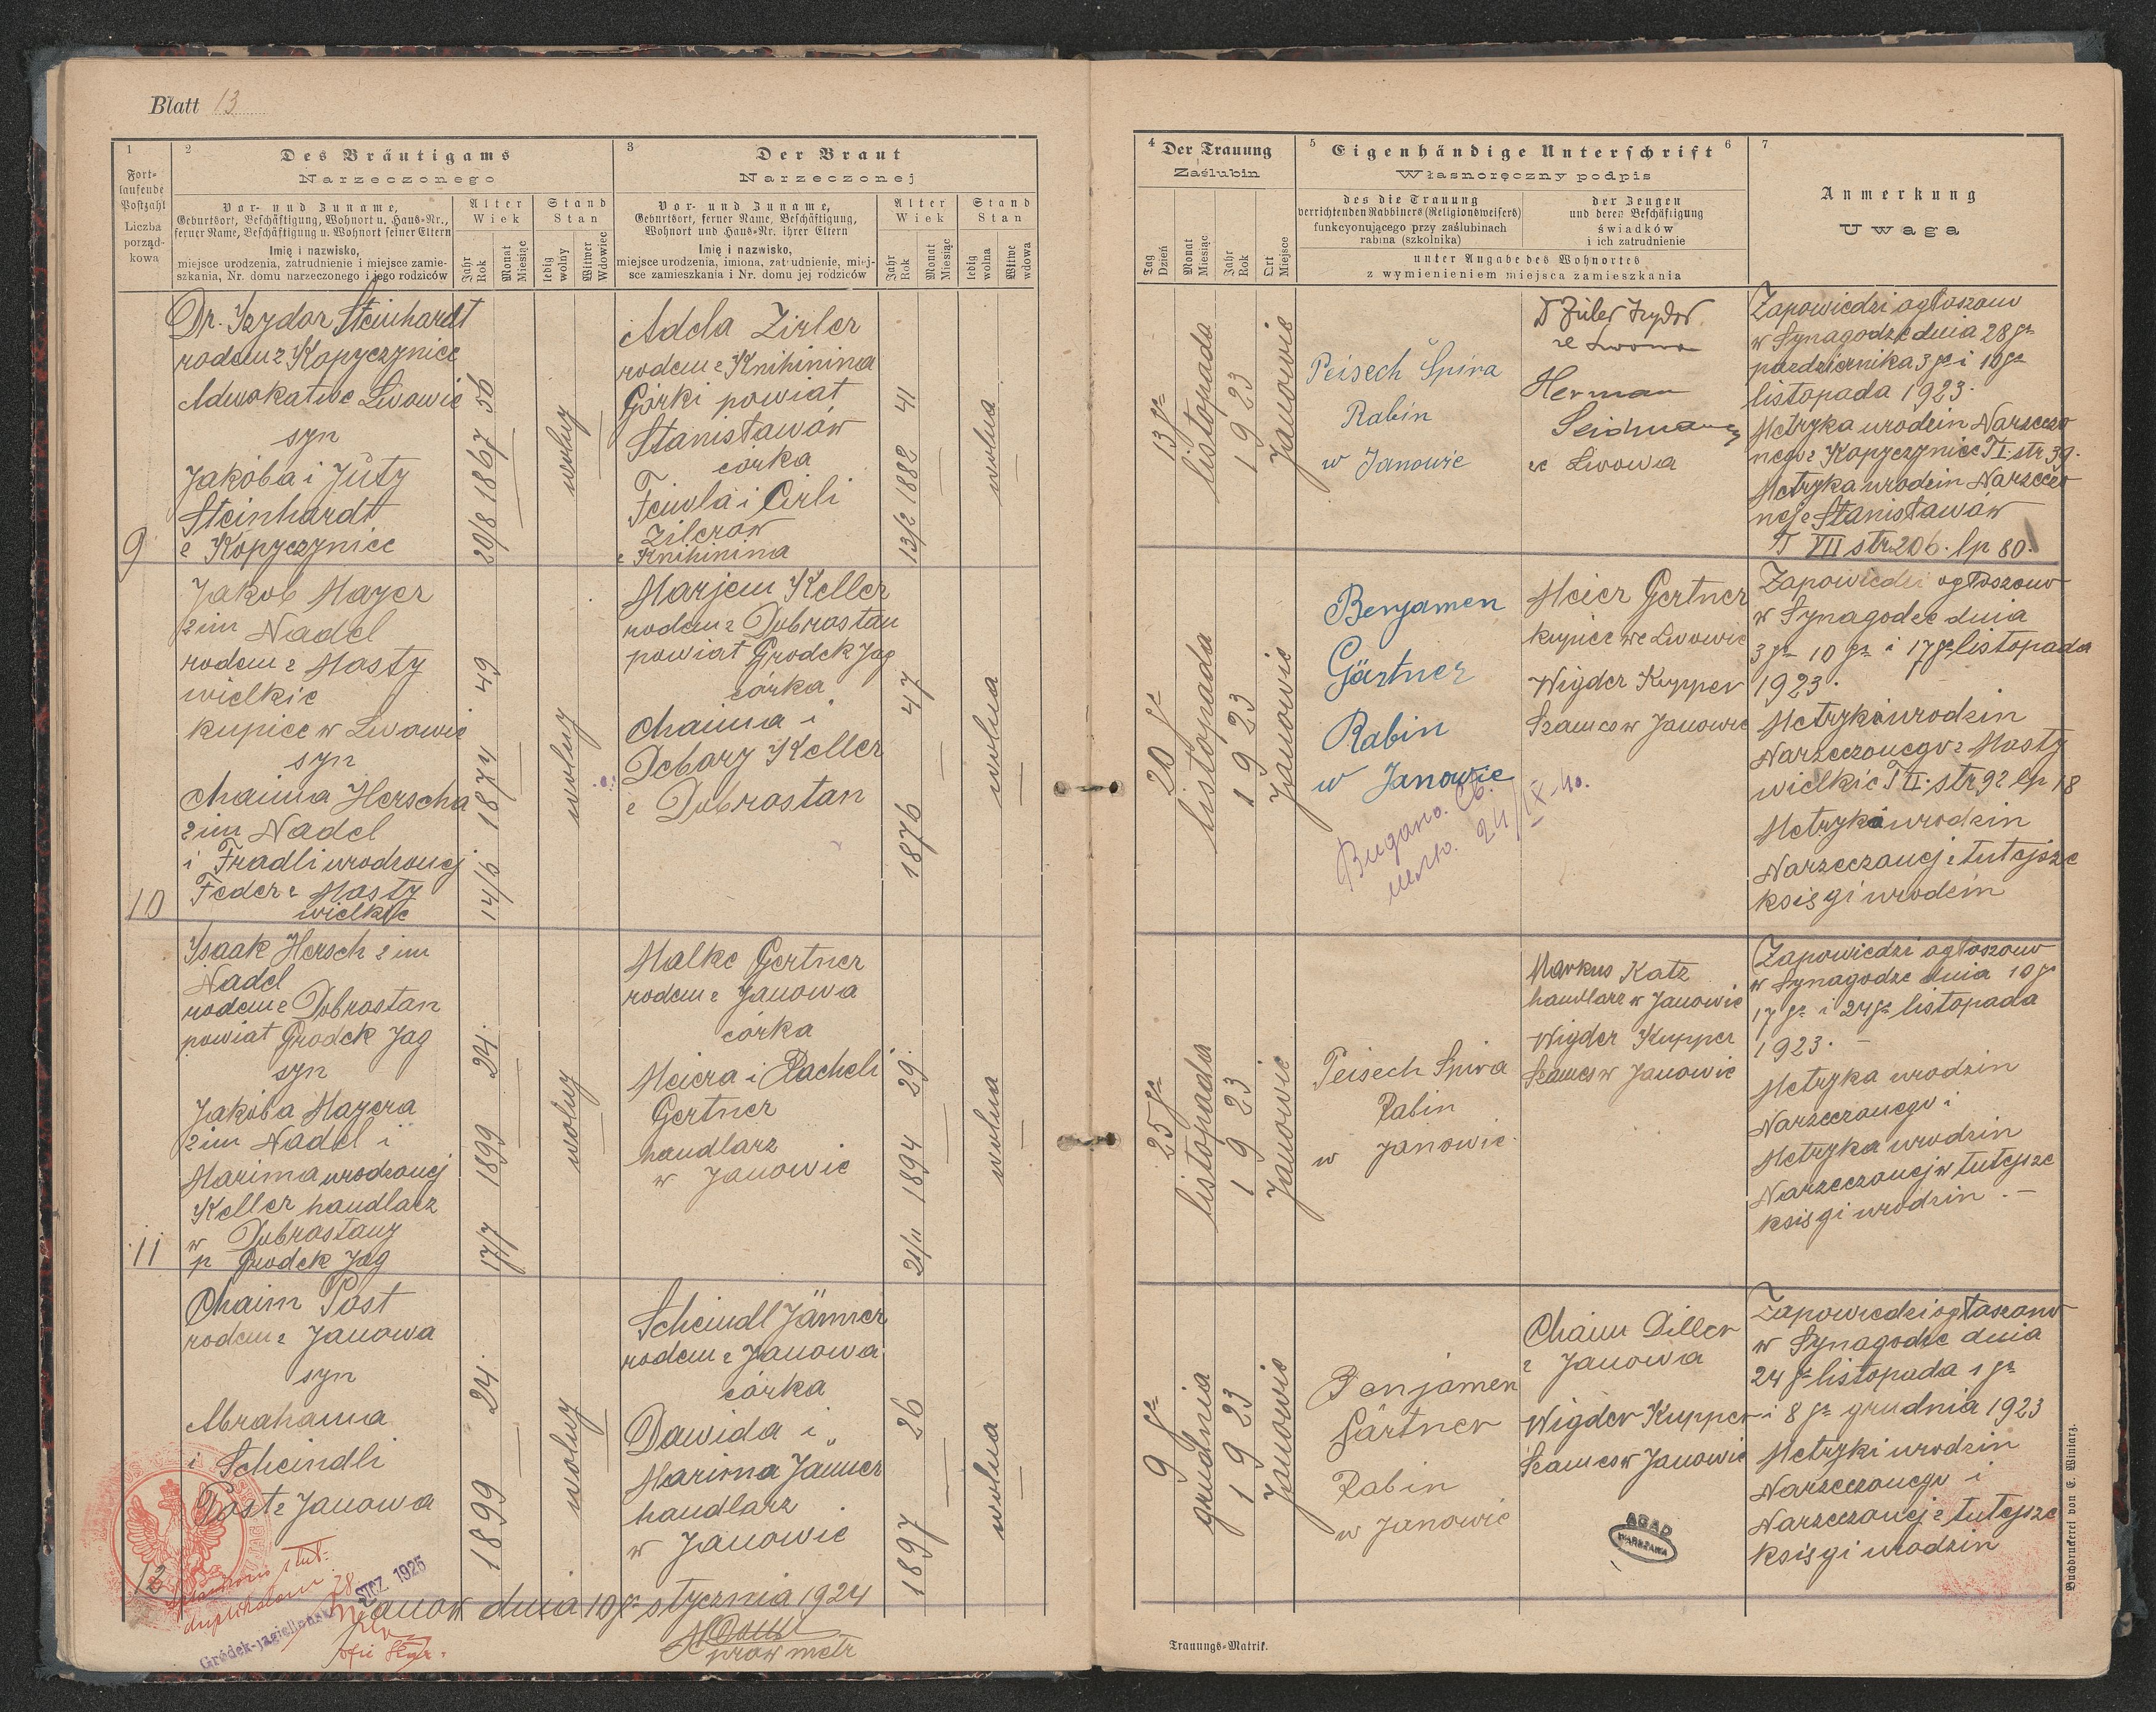 Blatt 13
1
Fort-
laufende
Postzahl
Liczba
porząd-
kowa
2
Des Bräutigams
Narzeczonego
Vor- und Zuname,
Geburtsort, Beschäftigung, Wohnort u. Haus-Nr.,
ferner Name, Beschäftigung u. Wohnort seiner Eltern
Imię i nazwisko,
miejsce urodzenia, zatrudnienie i miejsce zamie-
szkania, Nr. domu narzeczonego i jego rodziców
Alter
Wiek
Jahr
Rok
Monat
Miesiąc
Stand
Stan
ledig
wolny
Witwer
Wdowiec
3
Der Braut
Narzeczonej
Vor- und Zuname,
Geburtsort, ferner Name, Beschäftigung,
Wohnort und Haus-Nr. ihrer Eltern
Imię i nazwisko,
miejsce urodzenia, imiona, zatrudnienie, miej-
sce zamieszkania i Nr. domu jej rodziców
Alter
Wiek
Jahr
Rok
Monat
Miesiąc
Stand
Stan
ledig
wolna
Witwe
wdowa
4
Der Trauung
Zaślubin
Tag
Dzień
Monat
Miesiąc
Jahr
Rok
Ort
Miejsce
5
Eigenhändige Unterschrift
6
Własnoręczny podpis
des die Trauung
verrichtenden Rabbiners (Religionsweisers)
funkcyonującego przy zaślubinach
rabina (szkolnika)
der Zeugen
und deren Beschäftigung
świadków
i ich zatrudnienie
unter Angabe des Wohnortes
z wymienieniem miejsca zamieszkania
7
Anmerkung
Uwaga
9
Dr. Izydor Steinhardt
rodem z Kopyczyniec
Adwokat we Lwowie
syn
Jakóba i Juty
Steinhardt
z Kopyczyniec
20/8 1867 56
wolny
Adela Zirler
rodem z Knihinina
Górki powiat
Stanisławów
córka
Feiwla i Cirli
Zilerów
z Knihinina
13/2 1882 41
wolna
13go
listopada
1923
Janowie
Peisech Spira
Rabin
w Janowie
Dr Ziler Izydor
ze Lwowa
Herman
Seidman
ze Lwowa
Zapowiedzi ogłoszono
w Synagodze dnia 28go
października 3go i 10go
listopada 1923.
Metryka urodzin Narzeczo
nego z Kopyczyniec T I. str 39.
Metryka urodzin Narzeczo
nej z Stanisławów
T VII str 206. lp 80.
10
Jakob Mayer
2 im Nadel
rodem z Mosty
wielkie
kupiec w Lwowie
syn
Chaima Herscha
2 im Nadel
i Fradli urodzonej
Feder z Mosty
wielkie
14/6 1874 49
wolny
Marjem Keller
rodem z Dobrostan
powiat Grodek Jag
córka
Chaima i
Debory Keller
z Dobrostan
1876 47
wolna
20go
listopada
1923
Janowie
Benjamen
Gärtner
Rabin
w Janowie
24/IX-40.
Meier Gertner
kupiec we Lwowie
Wigder Kupper
Szames w Janowie
Zapowiedzi ogłoszono
w Synagodze dnia
3go 10go i 17go listopada
1923.
Metryka urodzin
Narzeczonego z Mosty
wielkie T II. str 92 lp 18
Metryka urodzin
Narzeczonej z tutejsze
księgi urodzin
11
Isaak Hersch 2 im
Nadel
rodem z Dobrostan
powiat Grodek Jag
syn
Jakóba Mayera
2 im Nadel i
Marima urodzonej
Keller handlarz
w Dobrostany
p Grodek Jag
17/7 1899 24.
wolny
Malke Gertner
rodem z Janowa
córka
Meiera i Racheli
Gertner
handlarz
w Janowie
21/11 1894 29.
wolna
25go
listopada
1923
Janowie
Peisech Spira
Rabin
w Janowie.
Markus Katz
handlarz w Janowie
Wigder Kupper
Szames w Janowie
Zapowiedzi ogłoszono
w Synagodze dnia 10go
17go i 24go listopada
1923. –
Metryka urodzin
Narzeczonego i
Metryka urodzin
Narzeczonej w tutejsze
księgi urodzin. –
12
Chaim Post
rodem z Janowa
syn
Abrahama
i Scheindli
Post z Janowa
1899 24.
wolny
Scheindl Jänner
rodem z Janowa
córka
Dawida i
Marima Janner
handlarz
w Janowie
1897 26
wolna
9go
grudnia
1923
Janowie
Benjamen
Gärtner
Rabin
w Janowie
Chaim Diller
z Janowa
Wigder Kupper
Szames w Janowie
Zapowiedzi ogłoszono
w Synagodze dnia
24go listopada 1go
i 8go grudnia 1923
Metryki urodzin
Narzeczonego i
Narzeczonej z tutejsze
księgi urodzin
AGAD
WARSZAWA
Janow dnia 10go stycznia 1924
prow metr
Gródek-Jagielloński
28 STCZ. 1925
Trauungs-Matrik.
Buchdruckerei von E. Winiarz.